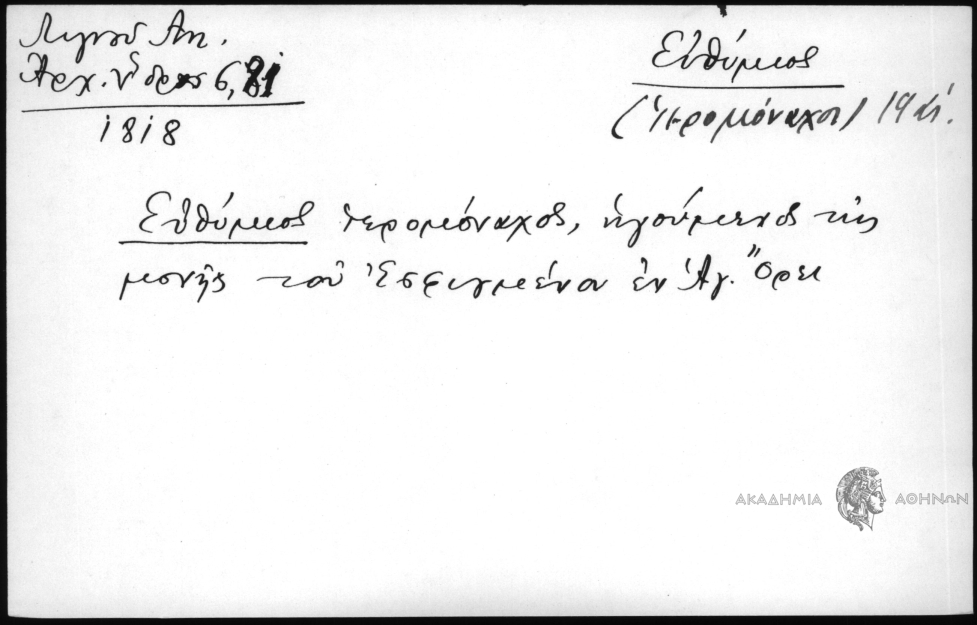 Λιγνοῦ Ἀντ.
Ἀρχ. Ὕδρας 6, 81
1818
Εὐθύμιος
(ἱερομόναχος) 19 αἰ.
Εὐθύμιος ἱερομόναχος, ἡγούμενος τῆς
μονῆς τοῦ Ἐσφιγμένου ἐν Ἁγ. Ὄρει
ΑΚΑΔΗΜΙΑ ΑΘΗΝΩΝ